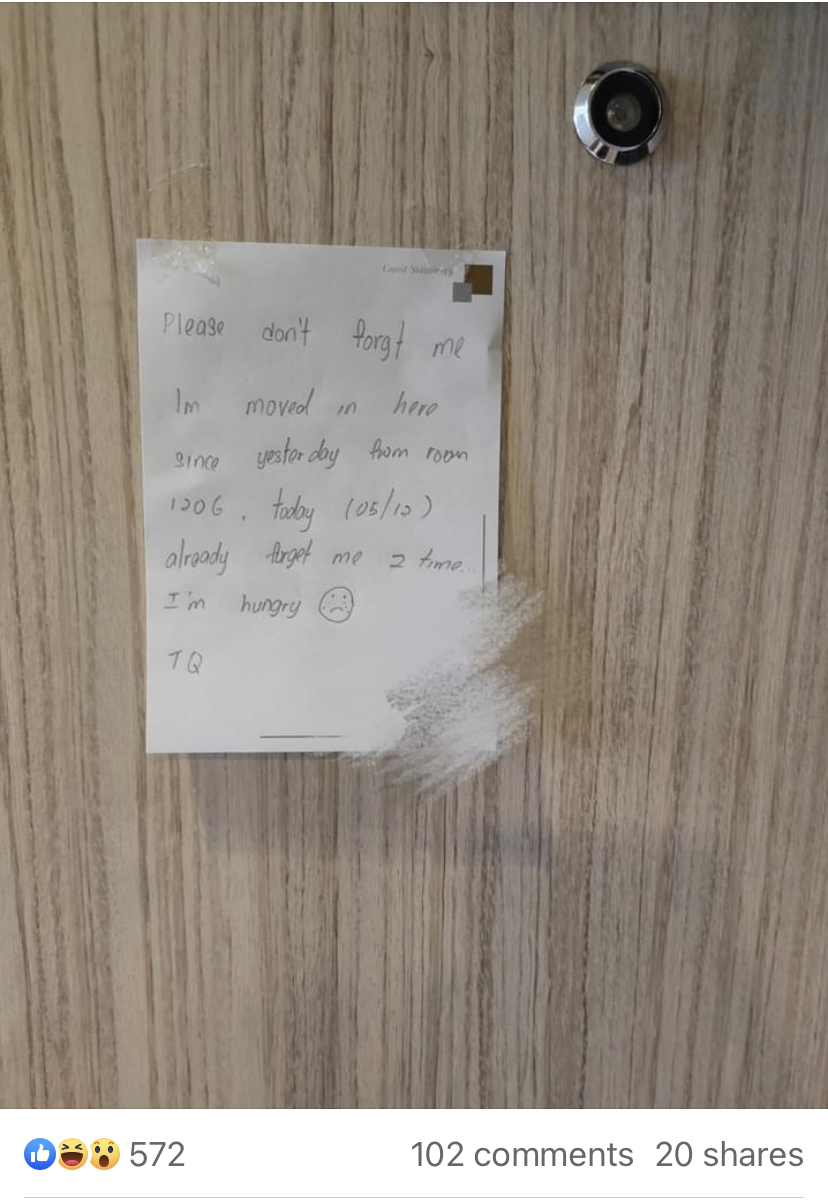 Guest Stationery
Please don't forgt me
Im moved in here
since yesterday from room
1206, today (05/12)
already forget me 2 time...
I'm hungry
TQ
572 102 comments 20 shares